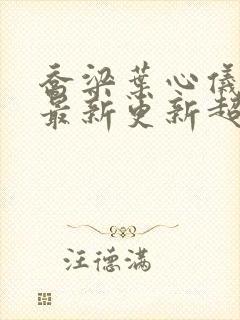 乔梁叶心仪
最新更新超
汪德满